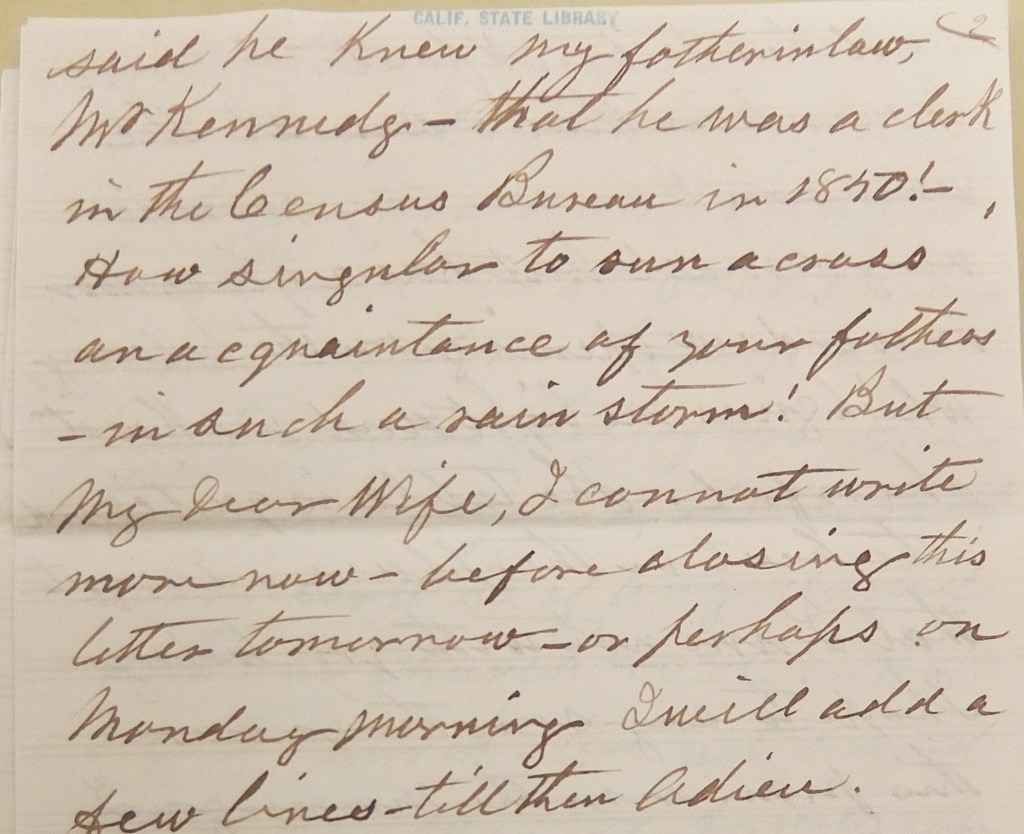 CALIF. STATE LIBRARY
2
said he knew my fatherinlaw,
Mr Kennedy - that he was a clerk
in the Census Bureau in 1850! -
How singular to run across
an acquaintance of your fathers
- in such a rain storm! But
My Dear Wife, I cannot write
more now - before closing this
letter tomorrow - or perhaps on
Monday morning I will add a
few lines - till then Adieu.